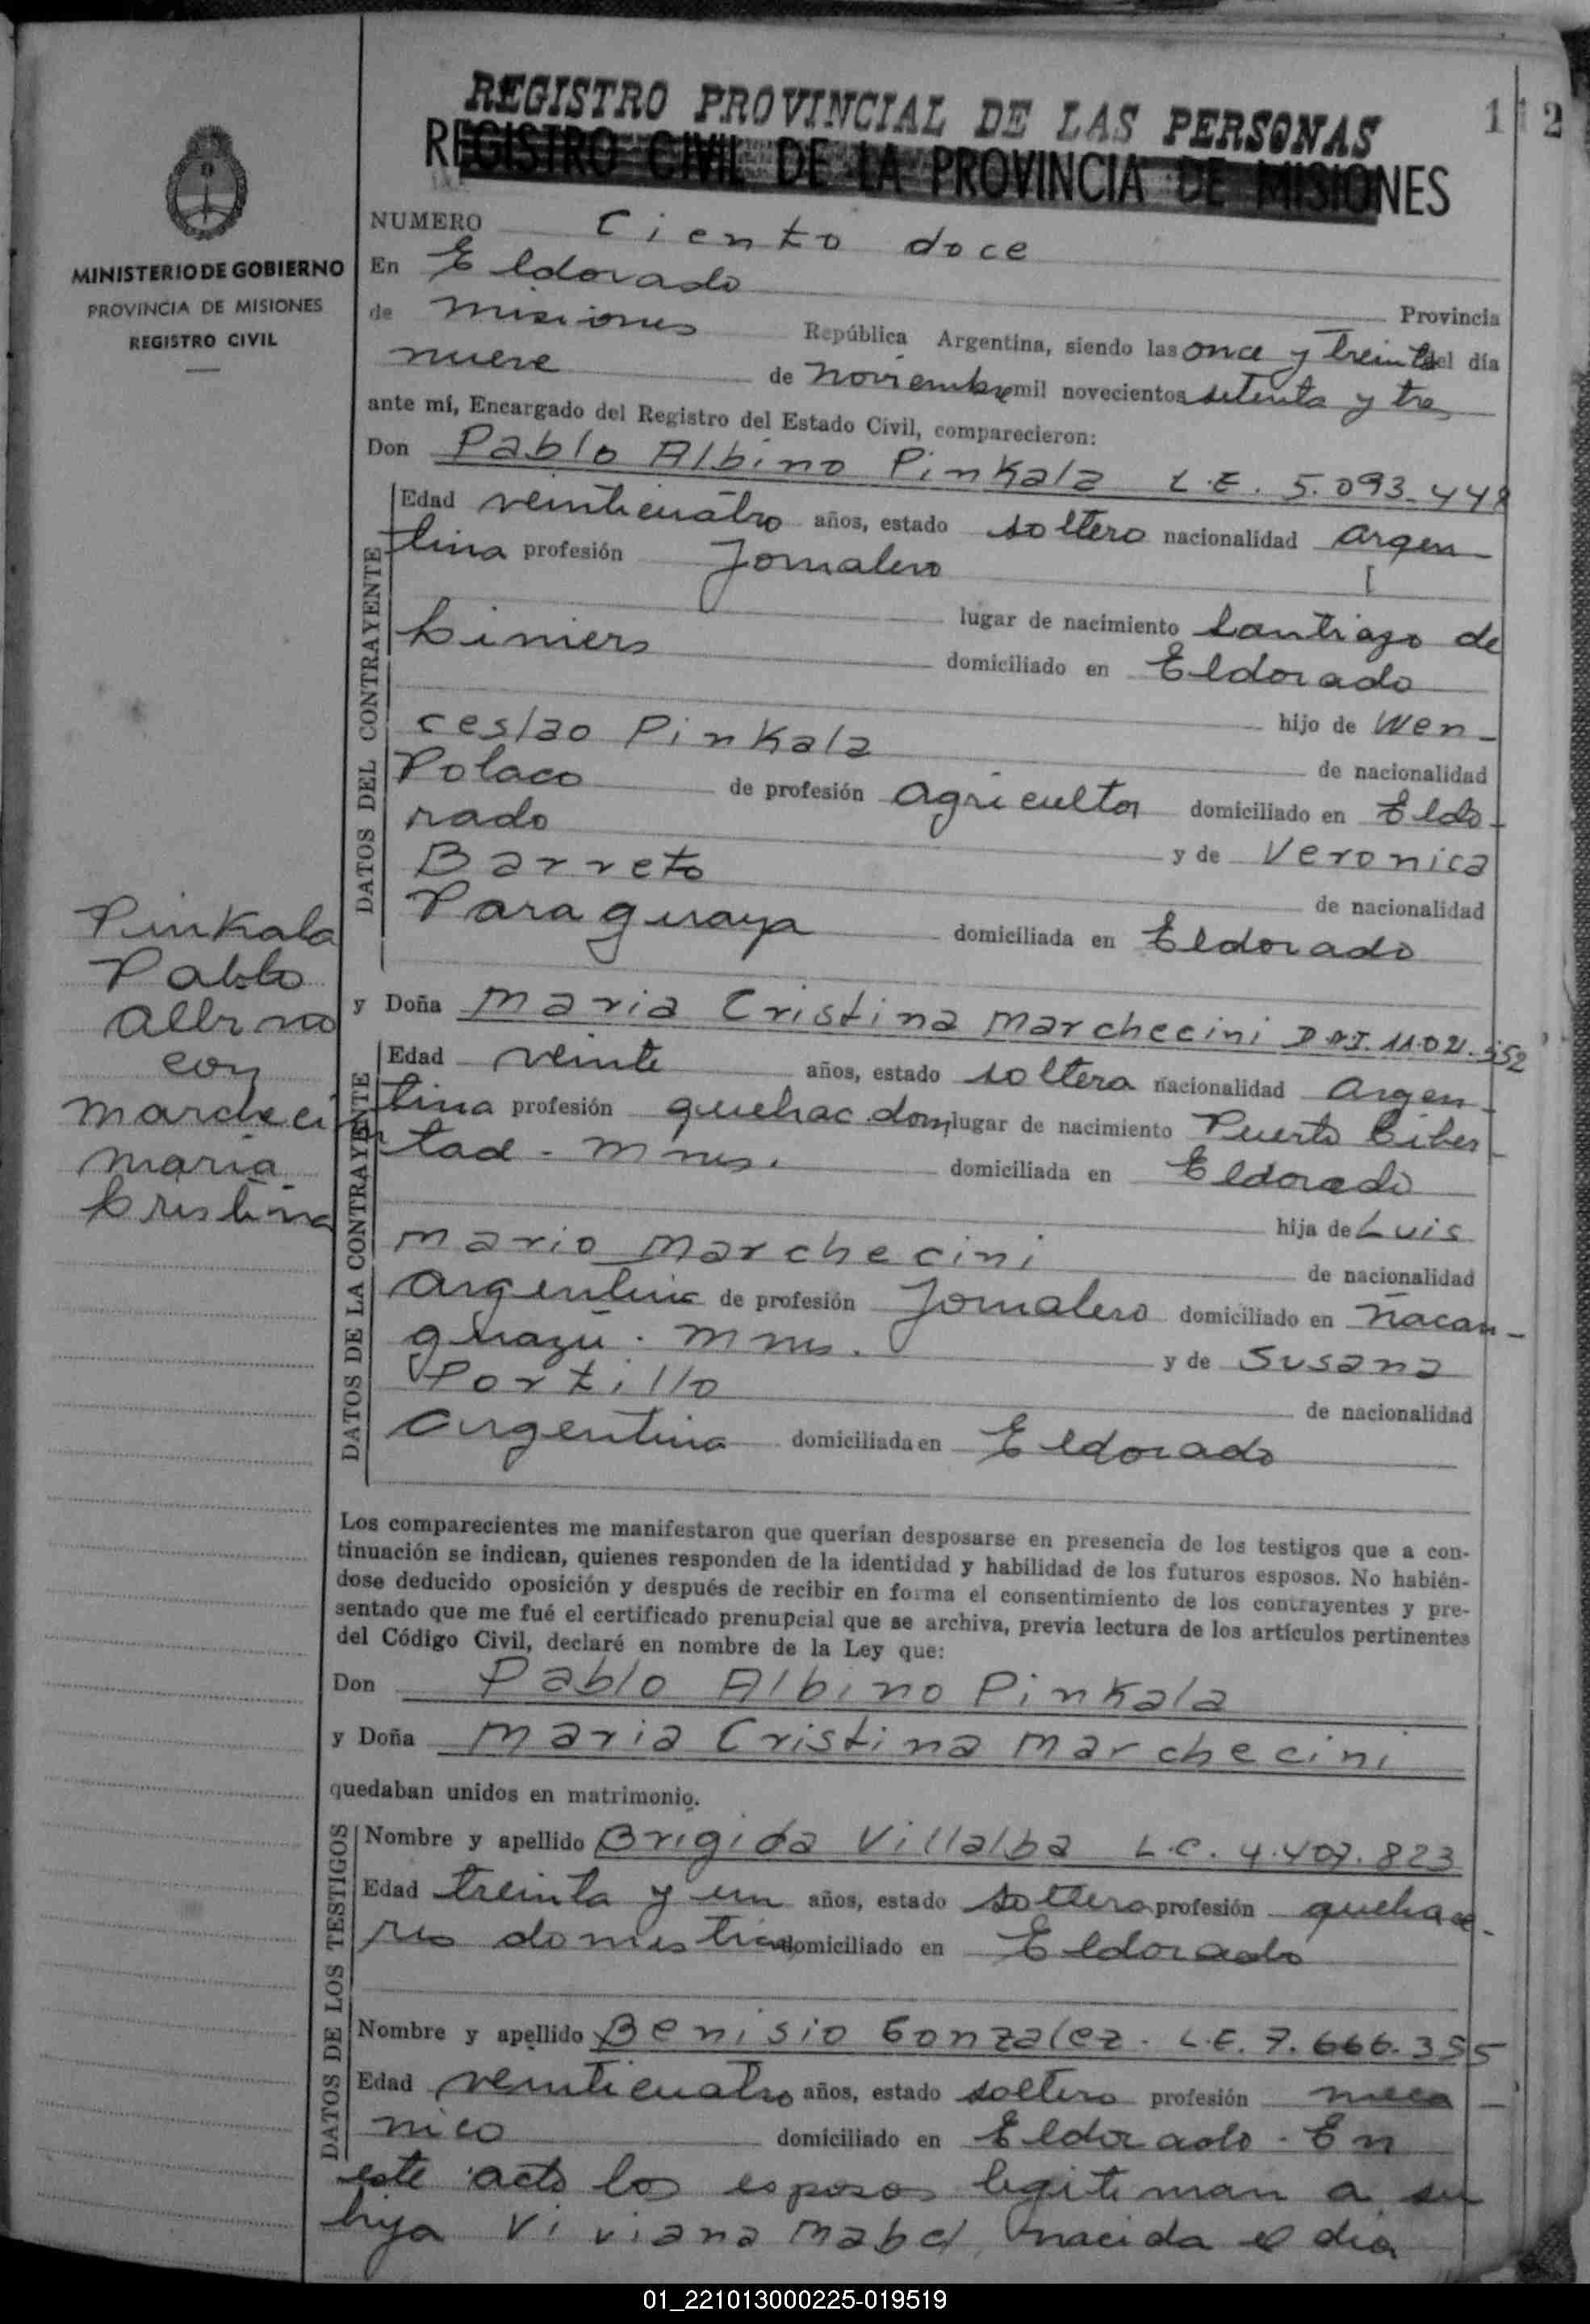 REGISTRO PROVINCIAL DE LAS PERSONAS
112
REGISTRO CIVIL DE LA PROVINCIA DE MISIONES
MINISTERIO DE GOBIERNO
PROVINCIA DE MISIONES
REGISTRO CIVIL
NUMERO Ciento doce
En Eldorado Provincia
de Misiones República Argentina, siendo las once y treinta del día
nueve de noviembre mil novecientos setenta y tres
ante mí, Encargado del Registro del Estado Civil, comparecieron:
Don Pablo Albino Pinkala L.E. 5.093.448
DATOS DEL CONTRAYENTE
Edad veinticuatro años, estado soltero nacionalidad argen
tina profesión Jornalero
lugar de nacimiento Santiago de
Liniers domiciliado en Eldorado
hijo de Wen-
ceslao Pinkala de nacionalidad
Polaco de profesión agricultor domiciliado en Eldo-
rado y de Veronica
Barreto de nacionalidad
Paraguaya domiciliada en Eldorado
Pinkala
Pablo
Albino
con
Marchecini
Maria
Cristina
y Doña Maria Cristina Marchecini D.N.I. 11.021.552
DATOS DE LA CONTRAYENTE
Edad veinte años, estado soltera nacionalidad argen-
tina profesión quehac. dom, lugar de nacimiento Puerto Liber-
tad - Mnes. domiciliada en Eldorado
hija de Luis
Mario Marchecini de nacionalidad
argentina de profesión Jornalero domiciliado en Ñacan-
guazú. Mnes. y de Susana
Portillo de nacionalidad
argentina domiciliada en Eldorado
Los comparecientes me manifestaron que querían desposarse en presencia de los testigos que a con-
tinuación se indican, quienes responden de la identidad y habilidad de los futuros esposos. No habién-
dose deducido oposición y después de recibir en forma el consentimiento de los contrayentes y pre-
sentado que me fué el certificado prenupcial que se archiva, previa lectura de los artículos pertinentes
del Código Civil, declaré en nombre de la Ley que:
Don Pablo Albino Pinkala
y Doña Maria Cristina Marchecini
quedaban unidos en matrimonio.
DATOS DE LOS TESTIGOS
Nombre y apellido Brigida Villalba L.C. 4.407.823
Edad treinta y un años, estado soltera profesión quehace-
res domesticos domiciliado en Eldorado
Nombre y apellido Benisio Gonzalez. L.E. 7.666.355
Edad veinticuatro años, estado soltero profesión meca-
nico domiciliado en Eldorado. En
este acto los esposos legitiman a su
hija Viviana Mabel, nacida el dia
01_221013000225-019519